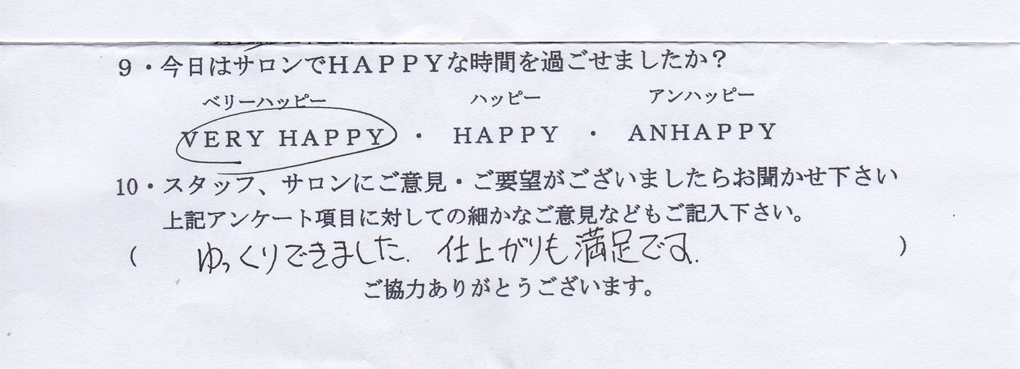 9・今日はサロンでHAPPYな時間を過ごせましたか？
ベリーハッピー ハッピー アンハッピー
VERY HAPPY ・ HAPPY ・ ANHAPPY
10・スタッフ、サロンにご意見・ご要望がございましたらお聞かせ下さい
上記アンケート項目に対しての細かなご意見などもご記入下さい。
( ゆっくりできました. 仕上がりも満足です. )
ご協力ありがとうございます。